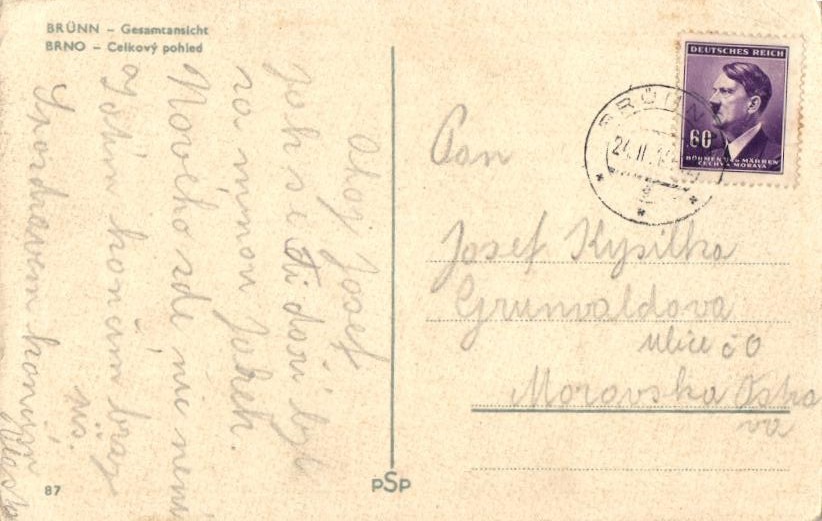 BRÜNN – Gesamtansicht
BRNO – Celkový pohled
Ahoj Josef
jak se Ti daří byl
za mnou
Nového zde nic není
končám
končím
87
pSp
DEUTSCHES REICH
60
BÖHMEN und MÄHREN
ČECHY a MORAVA
BRÜNN
24. II.
2
Pan
Josef Kysilka
Grunvaldova
ulice č 0
Moravska Ostra
va